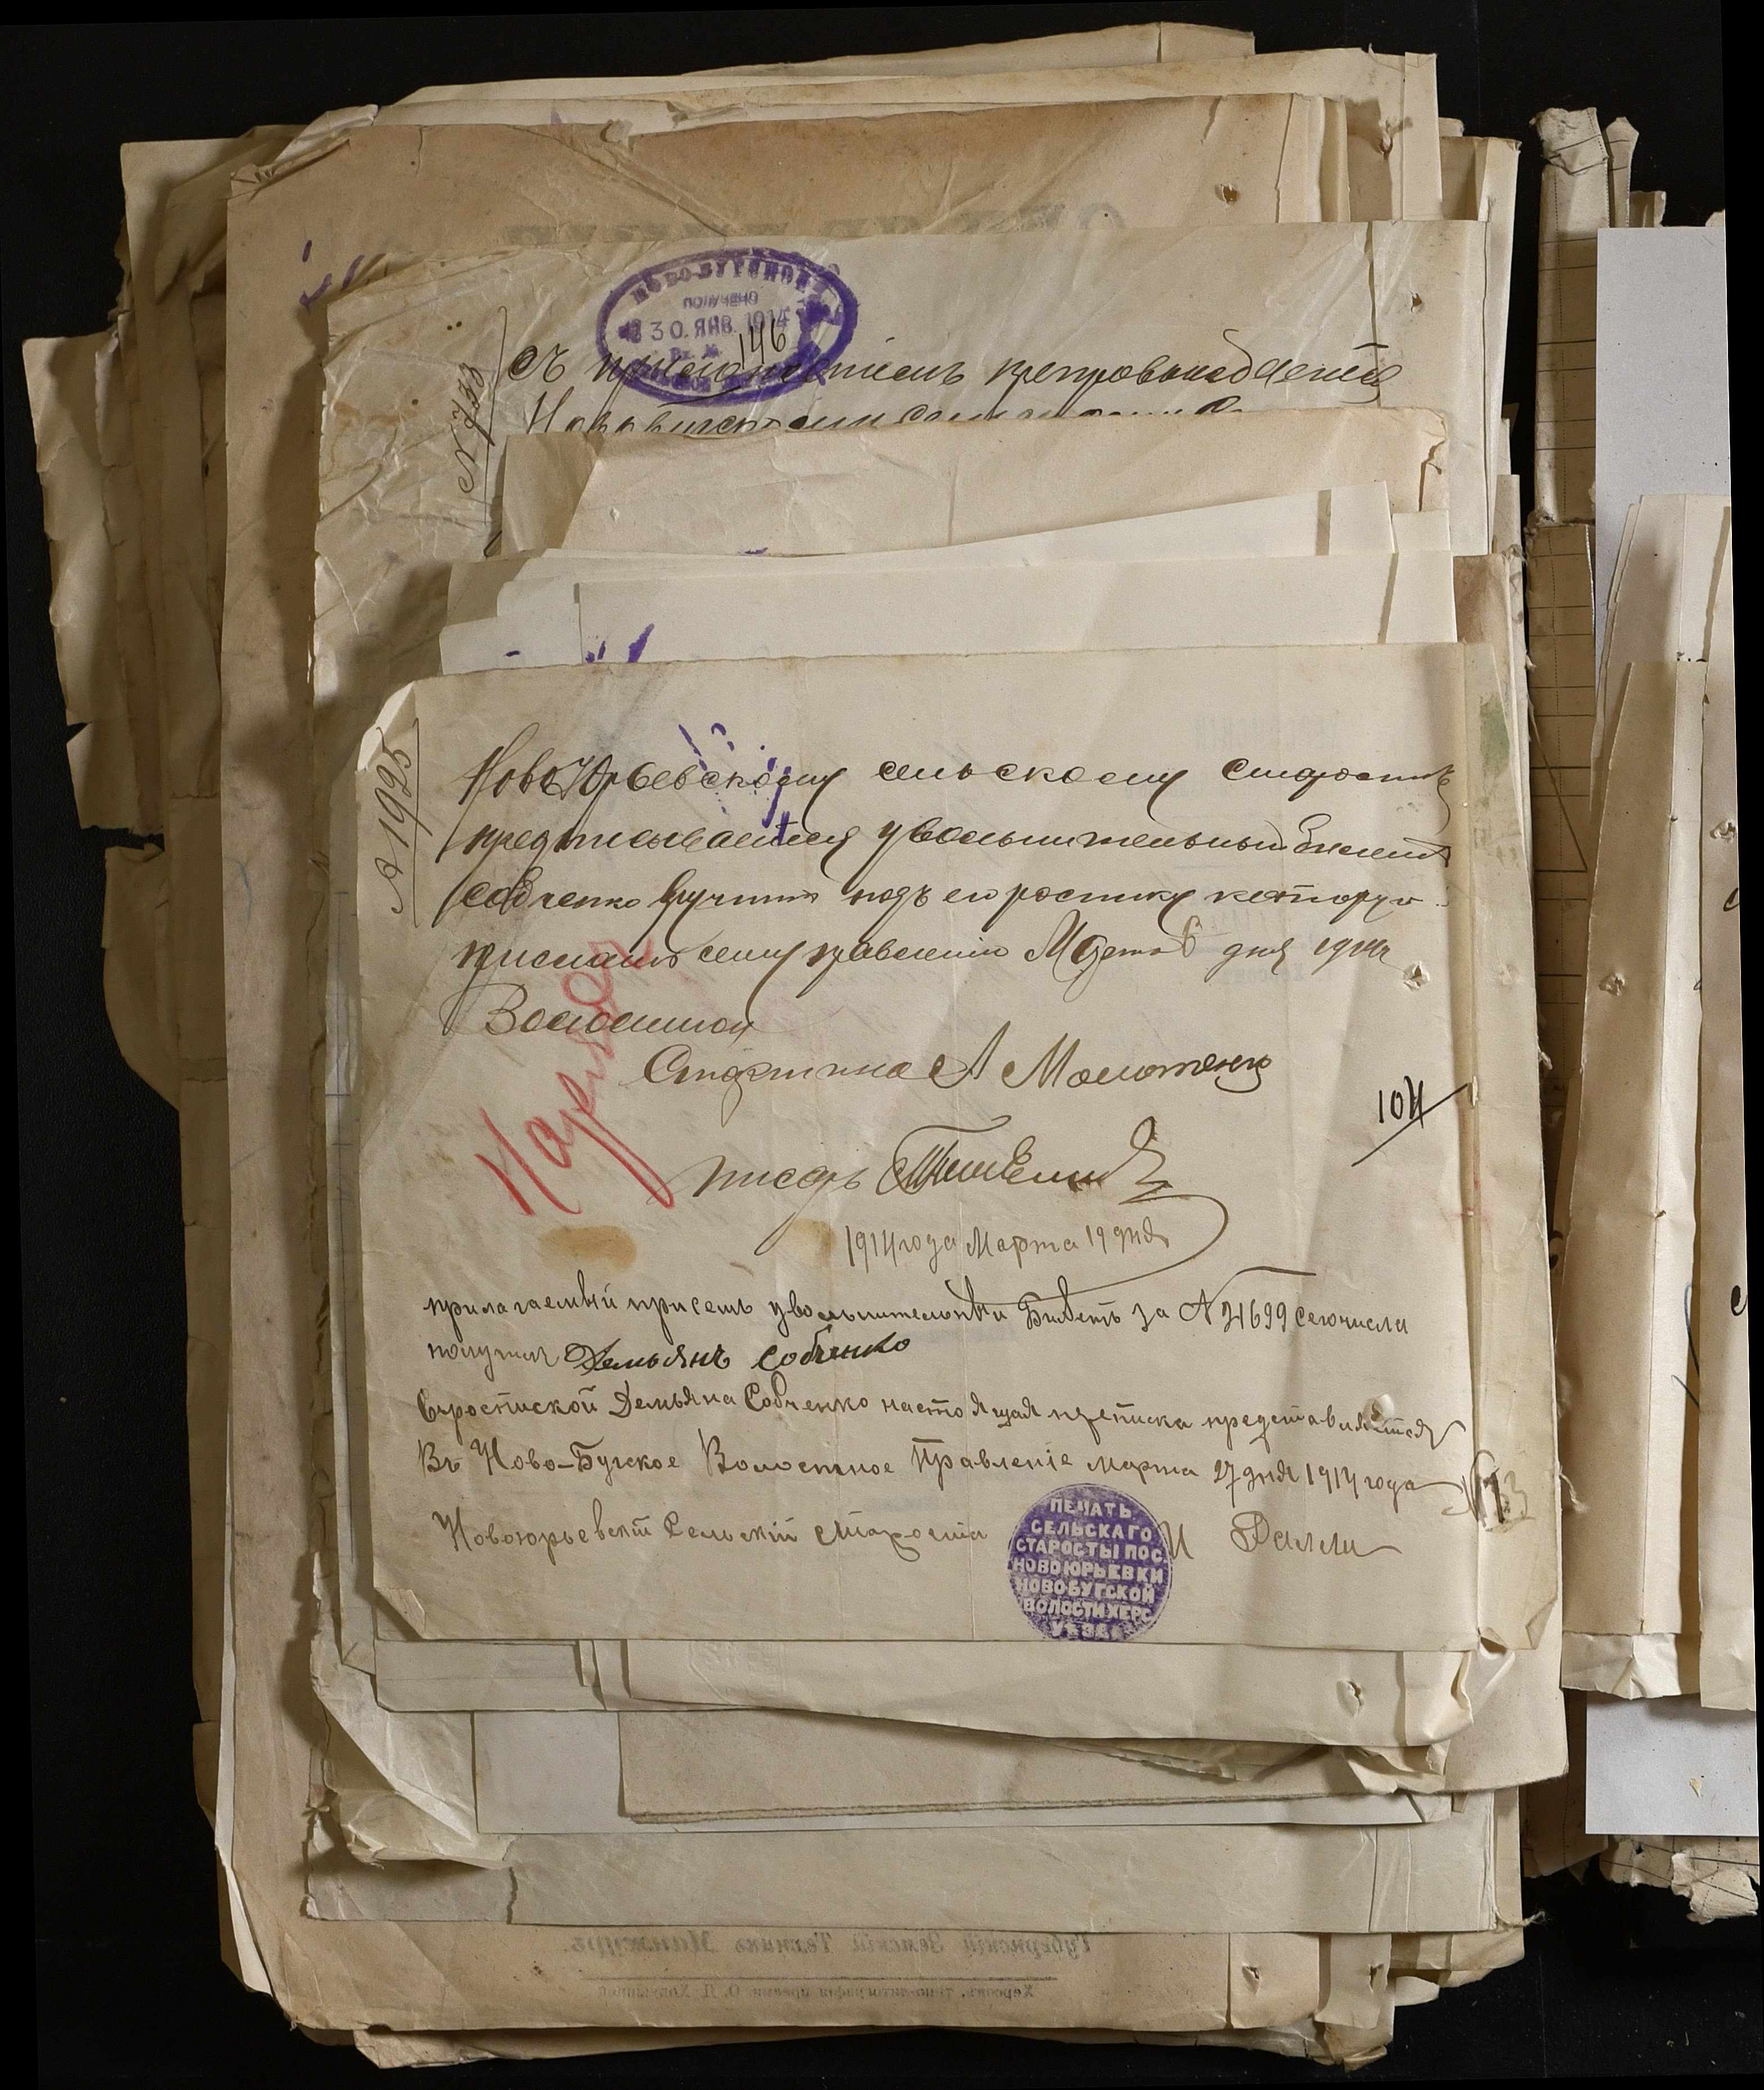 НОВО-БУГСКОЕ
ПОЛУЧЕНО
30. ЯНВ. 1914
Вх. №
146
№ 733
Съ приложеніемъ препровождается
№ 1925
НовоЮрьевскому сельскому Старостѣ
предписывается увольнительный билетъ
Собченко вручить подъ его росписку которую
прислать сему правленію Марта 6 дня 1914
Волостной
Старшина А Молотенко
писарь
Нарядъ
104
1914 года Марта 19 дня
прилагаемый присемъ увольнительный Билетъ за № 4699 сего числа
получилъ Демьянъ Собченко
Съ роспиской Демьяна Собченко настоящая переписка представляется
Въ Ново-Бугское Волостное Правленіе марта 27 дня 1914 года
Новоюрьевскій Сельскій Староста И
ПЕЧАТЬ
СЕЛЬСКАГО
СТАРОСТЫ ПОС.
НОВОЮРЬЕВКИ
НОВОБУГСКОЙ
ВОЛОСТИ ХЕРС.
УѢЗДА
Губернскій Земскій Техникъ Манжуръ.